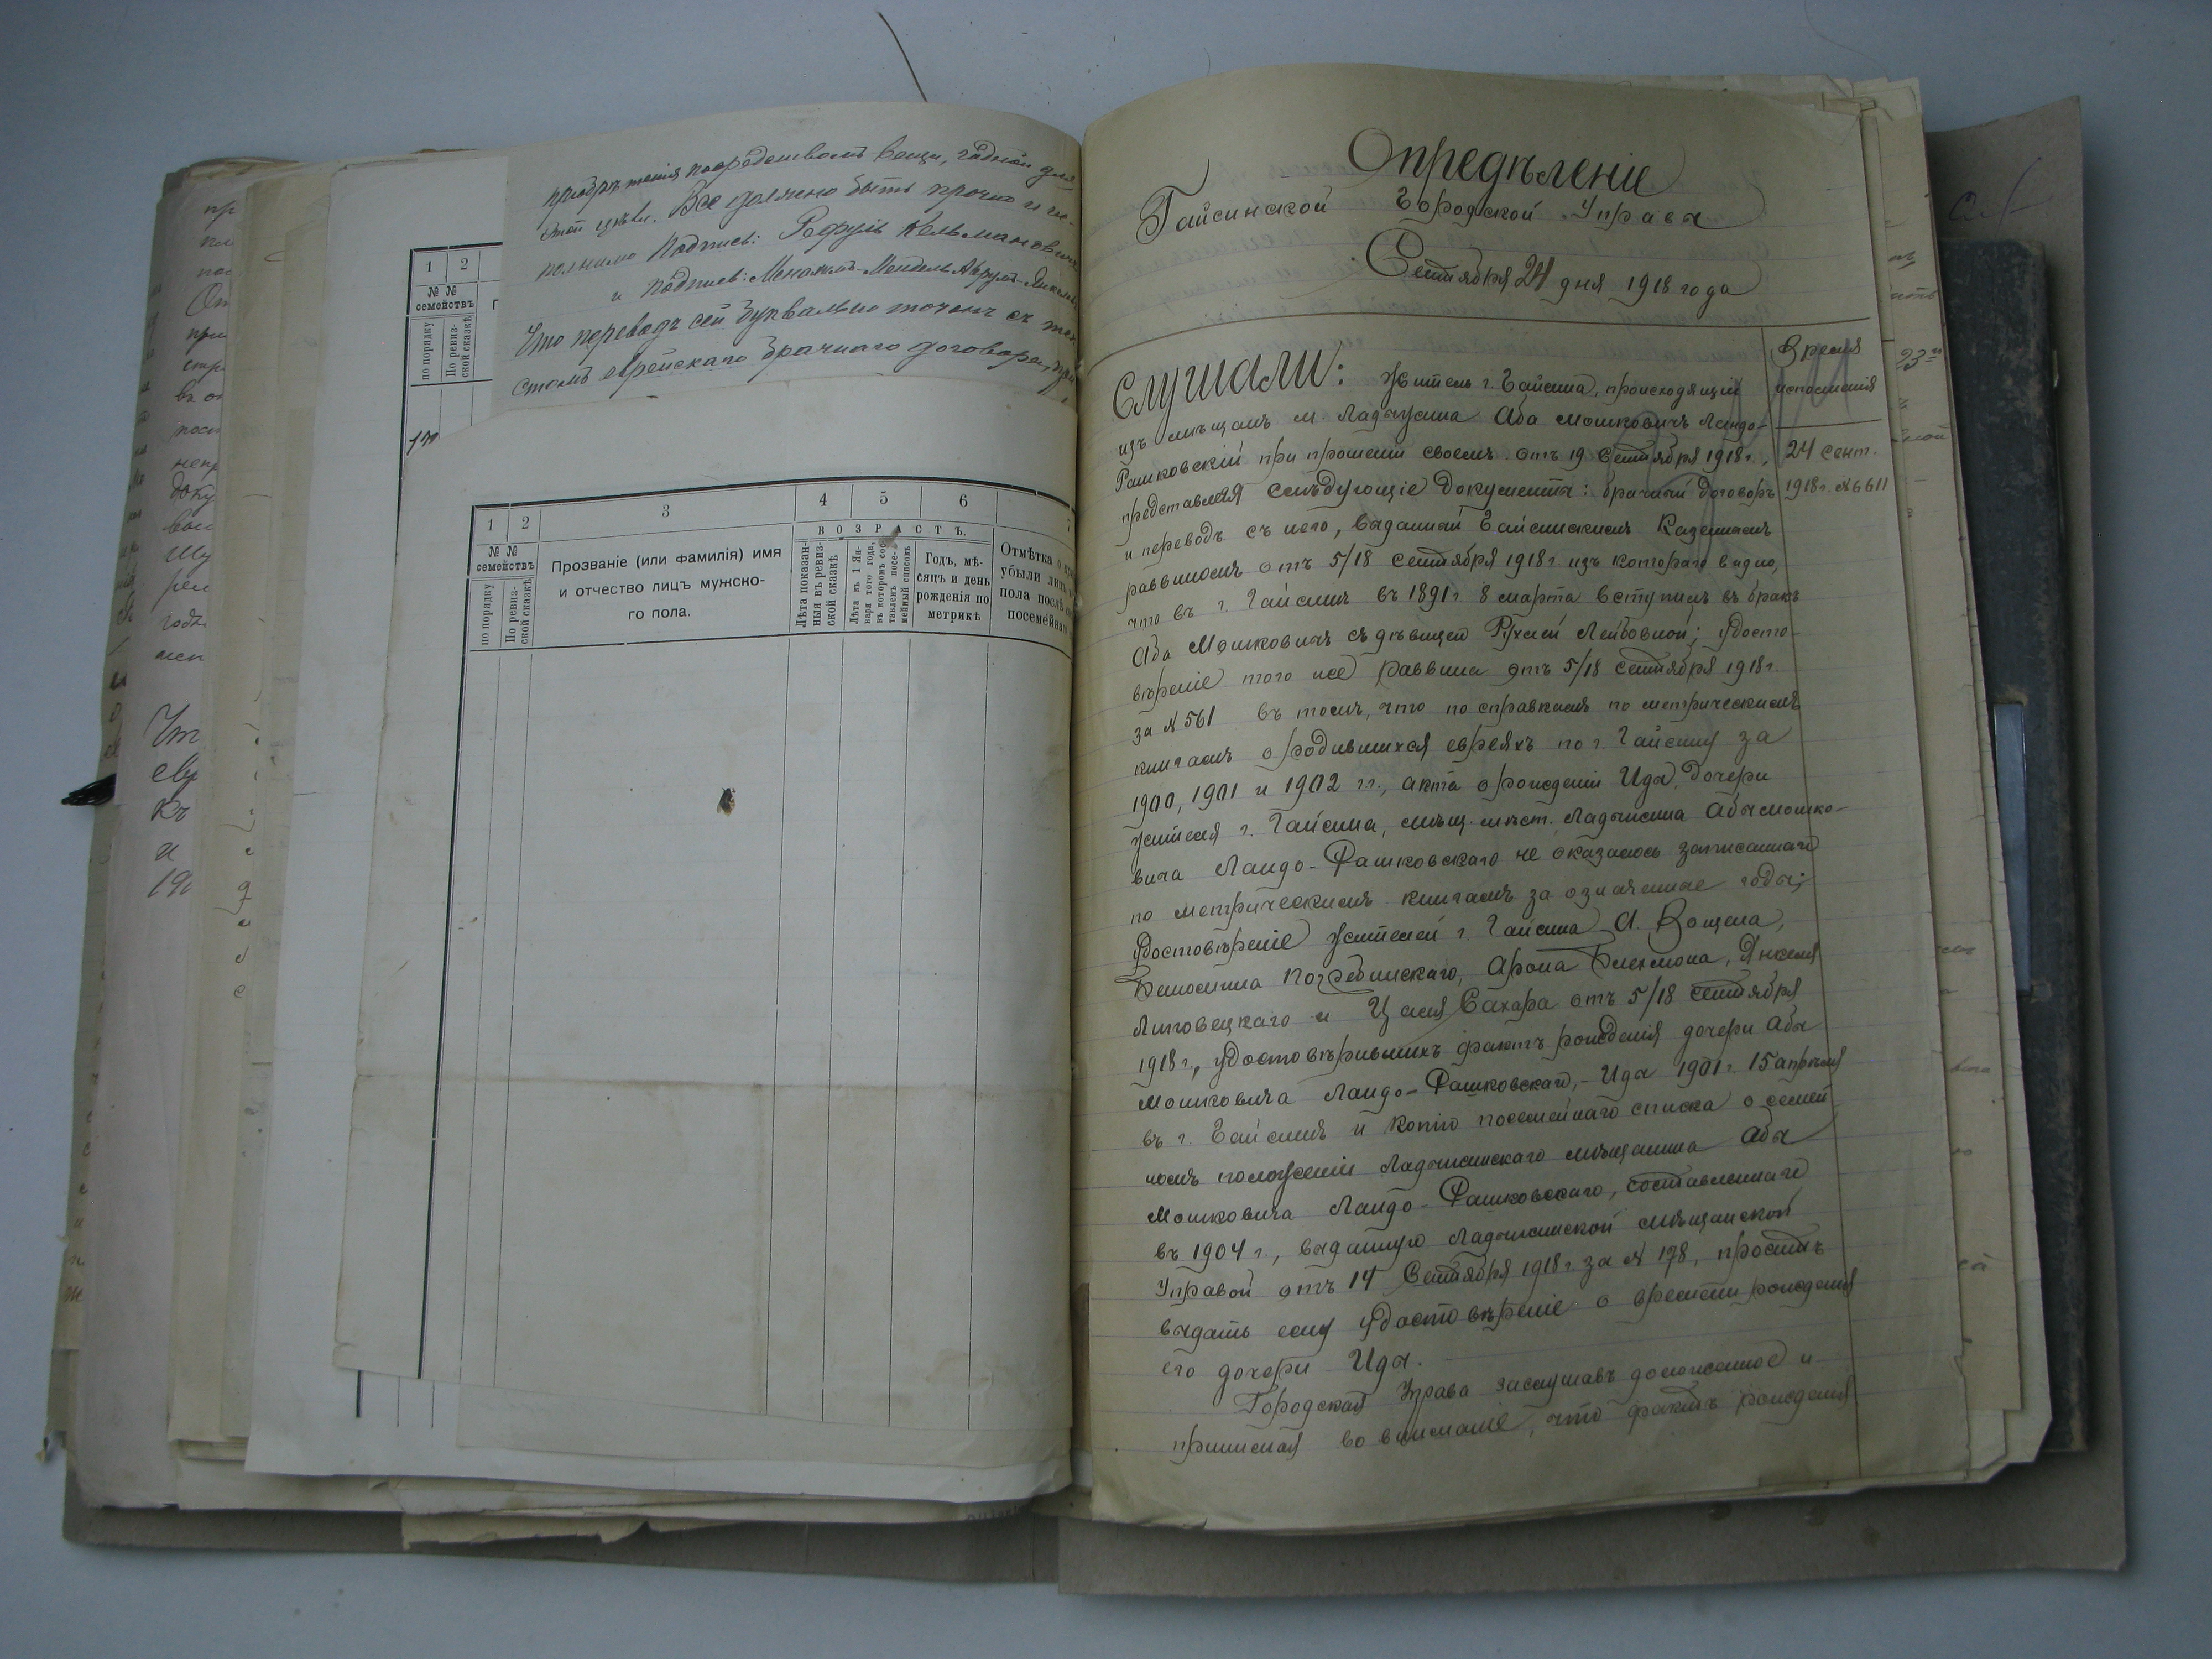 посредствомъ вещи, годной для
этой цѣли. Все должно быть прочно и не-
Подпись: Рефуль Кельмановичъ
и подпись: Менахемъ-Мендель Аврумъ-
Что переводъ сей буквально точенъ съ тек-
стомъ еврейскаго брачнаго договора, при
1 2
№ №
семействъ
по порядку
По ревиз-
ской сказкѣ
1 2 3 4 5 6 7
№ №
семействъ
по порядку
По ревиз-
ской сказкѣ
Прозваніе (или фамилія) имя
и отчество лицъ мужско-
го пола.
ВОЗРАСТЪ.
Лѣта показан-
ныя въ ревиз-
ской сказкѣ
Лѣта къ 1 Ян-
варя того года,
въ которомъ сос-
тавленъ посе-
мейный списокъ
Годъ, мѣ-
сяцъ и день
рожденія по
метрикѣ
Отмѣтка о
убыли лицъ
пола послѣ
посемейнаго
Опредѣленіе
Гайсинской Городской Управы
Сентября 24 дня 1918 года
Время
исполненія
24 сент.
1918 г. №6611
Слушали: Житель г. Гайсина, происходящій
изъ мѣщанъ м. Ладыжина Аба Мошковичъ Ландо-
Фашковскій при прошеніи своемъ отъ 19 Сентября 1918 г.,
представляя слѣдующіе документы: брачный договоръ
и переводъ съ него, выданный Гайсинскимъ Казеннымъ
раввиномъ отъ 5/18 сентября 1918 г. изъ котораго видно,
что въ г. Гайсинѣ въ 1891 г. 8 марта вступилъ въ бракъ
Аба Мошковичъ съ дѣвицею Рухлей Лейбовной; удосто-
вѣреніе того же раввина отъ 5/18 сентября 1918 г.
за № 561 въ томъ, что по справкамъ по метрическимъ
книгамъ о родившихся евреяхъ по г. Гайсину за
1900, 1901 и 1902 г.г., акта о рожденіи Иды, дочери
жителя г. Гайсина, мѣщ. мѣст. Ладыжина Абы Мошко-
вича Ландо-Фашковскаго не оказалось записаннаго
по метрическимъ книгамъ за означенные годы;
удостовѣреніе жителей г. Гайсина А. Вощена,
Беньомина Погребинскаго, Арона Блехмана, Янкеля
Липовецкаго и Цаля Сахара отъ 5/18 сентября
1918 г., удостовѣрившихъ фактъ рожденія дочери Абы
Мошковича Ландо-Фашковскаго, - Иды 1901 г. 15 апрѣля
въ г. Гайсинѣ и копію посемейнаго списка о семей
номъ положеніи Ладыжинскаго мѣщанина Абы
Мошковича Ландо-Фашковскаго, составленнаго
въ 1904 г., выданную Ладыжинской мѣщанской
Управой отъ 14 Сентября 1918 г. за № 178, проситъ
выдать ему удостовѣреніе о времени рожденія
его дочери Иды.
Городская Управа заслушавъ доложенное и
принимая во вниманіе, что фактъ рожденія